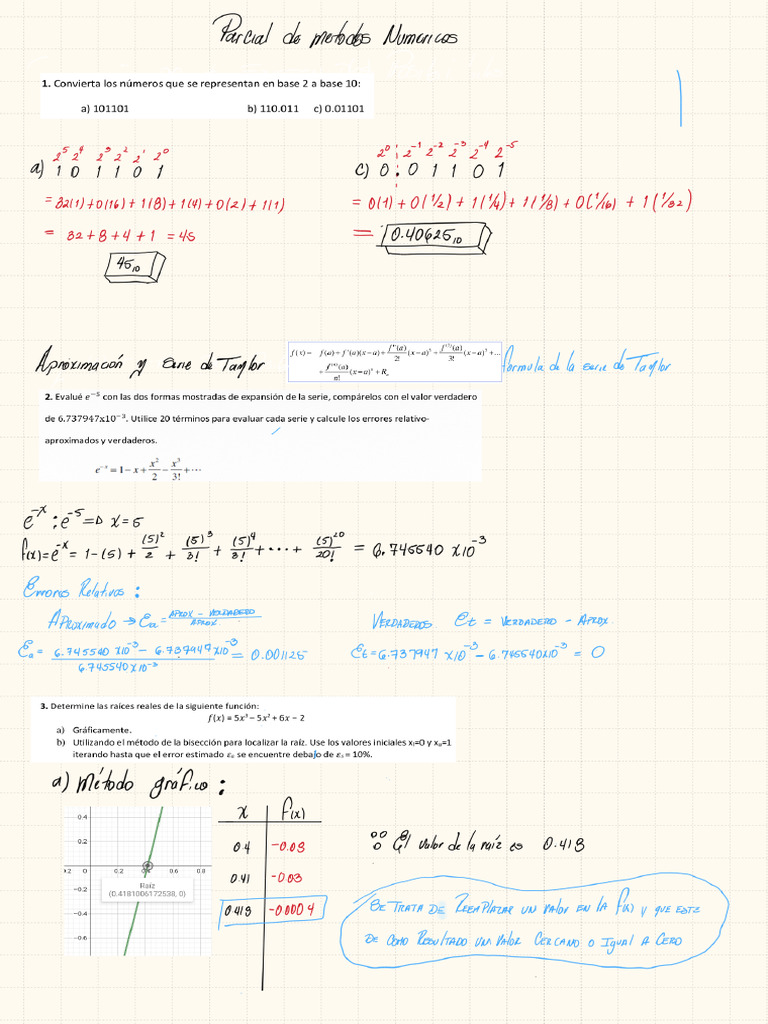 Parcial de metodos Numericos
1. Convierta los números que se representan en base 2 a base 10:
a) 101101 b) 110.011 c) 0.01101
2⁵ 2⁴ 2³ 2² 2¹ 2⁰
a) 1 0 1 1 0 1
= 32(1)+0(16)+1(8)+1(4)+0(2)+1(1)
= 32+8+4+1 = 45
45₁₀
2⁰ 2⁻¹ 2⁻² 2⁻³ 2⁻⁴ 2⁻⁵
c) 0.01101
= 0(1)+0(1/2)+1(1/4)+1(1/8)+0(1/16)+1(1/32)
= 0.40625₁₀
Aproximación y serie de Taylor
f(x) = f(a)+f'(a)(x−a)+f''(a)/2!(x−a)²+f⁽³⁾(a)/3!(x−a)³+...
+f⁽ⁿ⁾(a)/n!(x−a)ⁿ+Rₙ
formula de la serie de Taylor
2. Evalué e⁻⁵ con las dos formas mostradas de expansión de la serie, compárelos con el valor verdadero
de 6.737947x10⁻³. Utilice 20 términos para evaluar cada serie y calcule los errores relativo-
aproximados y verdaderos.
e⁻ˣ = 1 − x + x²/2 − x³/3! + ⋯
e⁻ˣ : e⁻⁵ =▷ x=5
f(x)=e⁻ˣ = 1-(5)+(5)²/2+(5)³/3!+(5)⁴/4!+...+(5)²⁰/20! = 6.745540 x10⁻³
Errores Relativos:
Aproximado → Ea = APROX - VERDADERO/APROX.
Ea = 6.745540 x10⁻³ - 6.737947 x10⁻³/6.745540 x10⁻³ = 0.001125
VERDADEROS et = VERDADERO - APROX.
Et = 6.737947 x10⁻³ - 6.745540x10⁻³ = 0
3. Determine las raíces reales de la siguiente función:
f(x) = 5x³ − 5x² + 6x − 2
a) Gráficamente.
b) Utilizando el método de la bisección para localizar la raíz. Use los valores iniciales xₗ=0 y xᵤ=1
iterando hasta que el error estimado εₐ se encuentre debajo de εₛ = 10%.
a) Método gráfico:
0.4
0.2
0.2 0 0.2 0.4 0.6 0.8
−0.2
−0.4
−0.6
Raíz
(0.4181006172538, 0)
x f(x)
0.4 -0.08
0.41 -0.03
0.418 -0.0004
∴ El valor de la raíz es 0.418
SE TRATA DE REEMPLAZAR UN VALOR EN LA f(x) y QUE ESTE
DE COMO RESULTADO UN VALOR CERCANO O IGUAL A CERO